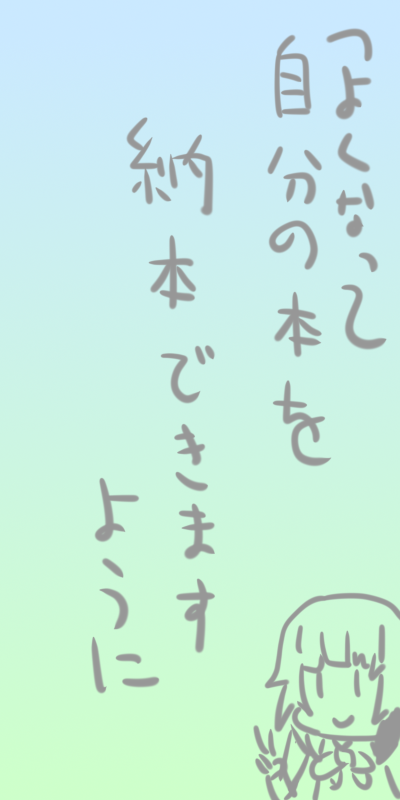 つよくなって
自分の本を
納本できます
ように